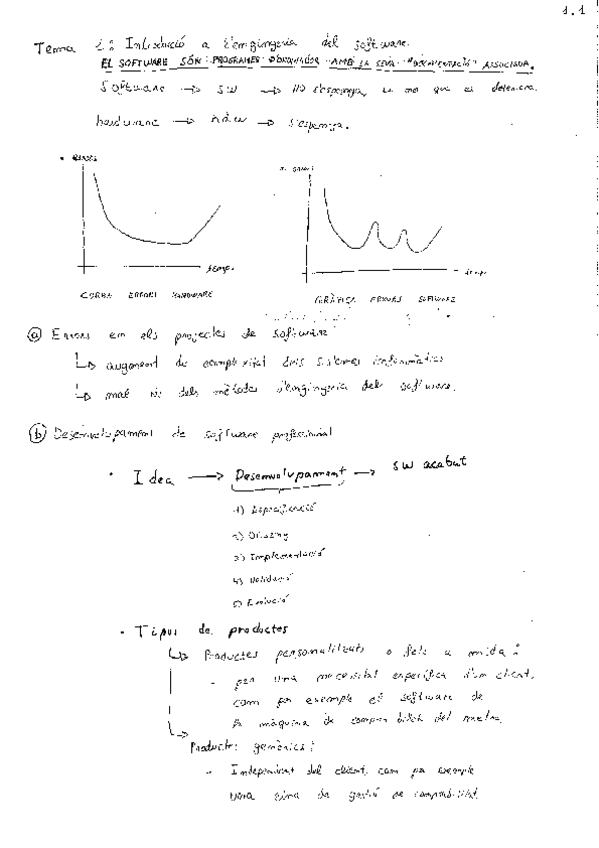 1.1
Tema 1: Introducció a l'enginyeria del software.
EL SOFTWARE SÓN "PROGRAMES D'ORDINADOR AMB LA SEVA "DOCUMENTACIÓ" ASSOCIADA.
Software → SW → NO s'espenya, es que es deteriora.
hardware → HDW → s'espenya.
errors
n. errors
temps
temps
CORBA ERRORS HARDWARE
GRÀFICA ERRORS SOFTWARE
a) Errors em els projectes de software
augment de complexitat dels sistemes informàtics
mal ús dels mètodes d'enginyeria del software.
b) Desenvolupament de software professional
Idea → Desenvolupament → SW acabat
1) Especificació
2) Disseny
3) Implementació
4) Validació
5) Evolució
Tipus de productes
Productes personalitzats o fets a mida:
- per una necessitat específica d'un client,
com per exemple el software de
la màquina de compra bitllet del metro.
Productes genèrics:
- Independent del client, com per exemple
una eina de gestió de comptabilitat.